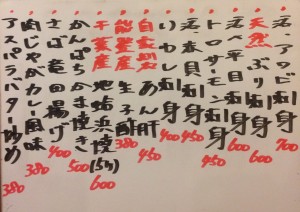 活・アワビ刺身 700
天然ぶり刺身 600
活・平目刺身 600
トロサーモン刺身 450
活・赤貝刺身 450
いかし刺身 400
自家製あん肝 450
能登産生子酢 380
千葉産地蛤浜焼(5ヶ) 600
かんぱちかま焼き 500
さば竜田揚げ 400
肉じゃがカレー風味 380
アスパラバター炒め 380